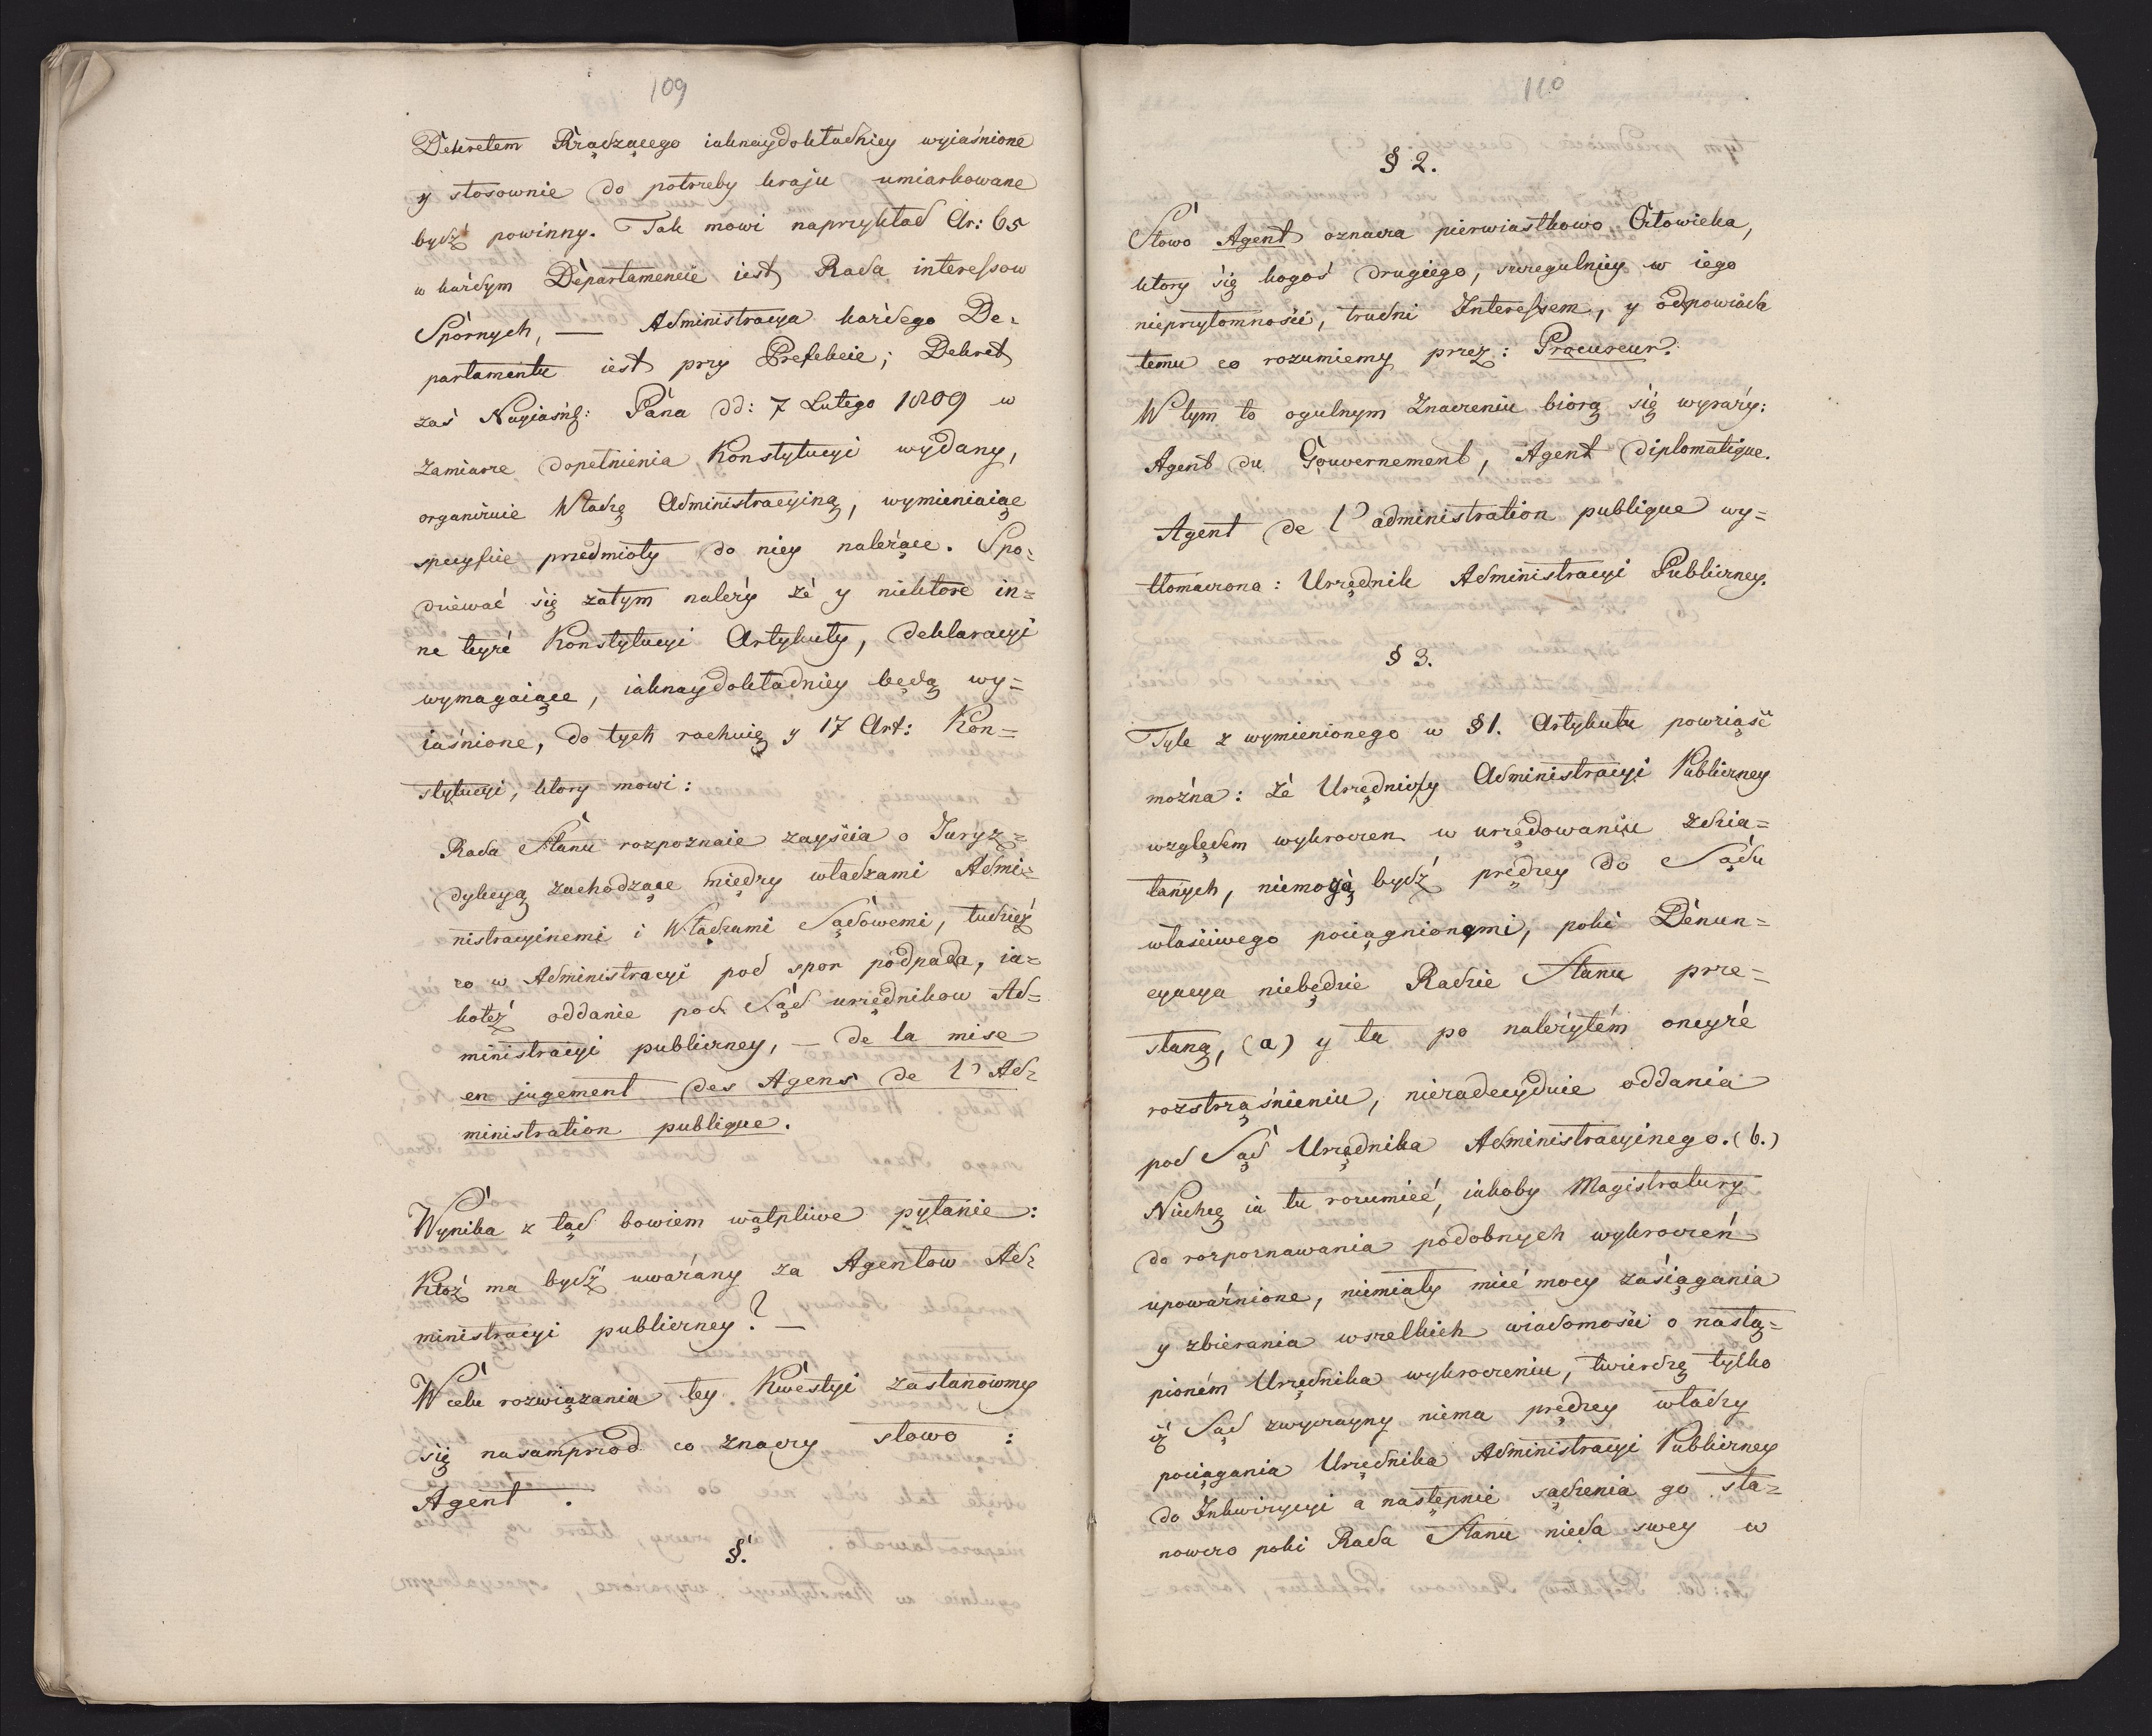 109
Dekretem Rządzącego iaknaydokładniey wyiaśnione
y stosownie do potrzeby kraju umiarkowane
bydź powinny. Tak mowi naprzykład Ar: 65
w każdym Departamencie iest Rada interessow
Spornych, — Administracya każdego De-
partamentu iest przy Prefekcie; Dekret
zaś Nayiaśń: Pana dd: 7 Lutego 1809 w
zamiarze dopełnienia Konstytucyi wydany,
organizuie Władzę Administracyiną, wymieniaiąc
specyficie przedmioty do niey należące. Spo-
dziewać się zatym należy że y niektore in-
ne teyże Konstytucyi Artykuły, deklaracyi
wymagaiące, iaknaydokładniey będą wy=
iaśnione, do tych rachuię y 17 Art: Kon=
stytucyi, ktory mowi:
Rada Stanu rozpoznaie zayścia o Juryz=
dykcyą zachodzące między władzami Admi-
nistracyinemi i Władzami Sądowemi, tudzież
co w Administracyi pod spor podpada, ia-
koteż oddanie pod Sąd urzędnikow Ad=
ministracyi publiczney, — de la mise
en jugement des Agens de l'Ad-
ministration publique.
Wynika z tąd bowiem wątpliwe pytanie:
Ktoż ma bydź uważany za Agentow Ad-
ministracyi publiczney? —
W celu rozwiązania tey Kwestyi zastanowmy
się nasamprzod co znaczy słowo:
Agent.
§.
110
§ 2.
Słowo Agent oznacza pierwiastkowo Człowieka,
ktory się kogoś drugiego, szczegulniey w iego
nieprzytomności, trudni Interessem, y odpowiada
temu co rozumiemy przez: Procureur.
W tym to ogulnym znaczeniu biorą się wyrazy:
Agent du Gouvernement, Agent diplomatique.
Agent de l'administration publique wy=
tłomaczona: Urzędnik Administracyi Publiczney.
§ 3.
Tyle z wymienionego w §1. Artykułu powziąść
można: że Urzędnicy Administracyi Publiczney
względem wykroczen w urzędowaniu zdzia=
łanych, niemogą bydź prędzey do Sądu
właściwego pociągnionemi, poki Denun=
cyacya niebędzie Radzie Stanu prze=
słaną, (a) y ta po należytém oneyże
rozstrząśnieniu, niezadecyduie oddania
pod Sąd Urzędnika Administracyinego. (b.)
Niechcę ia tu rozumieć, iakoby Magistratury
do rozpoznawania podobnych wykroczeń
upoważnione, niemiały mieć mocy zasiągania
y zbierania wszelkich wiadomości o nastą=
pioném Urzędnika wykroczeniu, twierdzę tylko
iż Sąd zwyczayny niema prędzey władzy
pociągania Urzędnika Administracyi Publiczney
do Inkwizycyi a następnie sądzenia go sta-
nowczo poki Rada Stanu nieda swey w